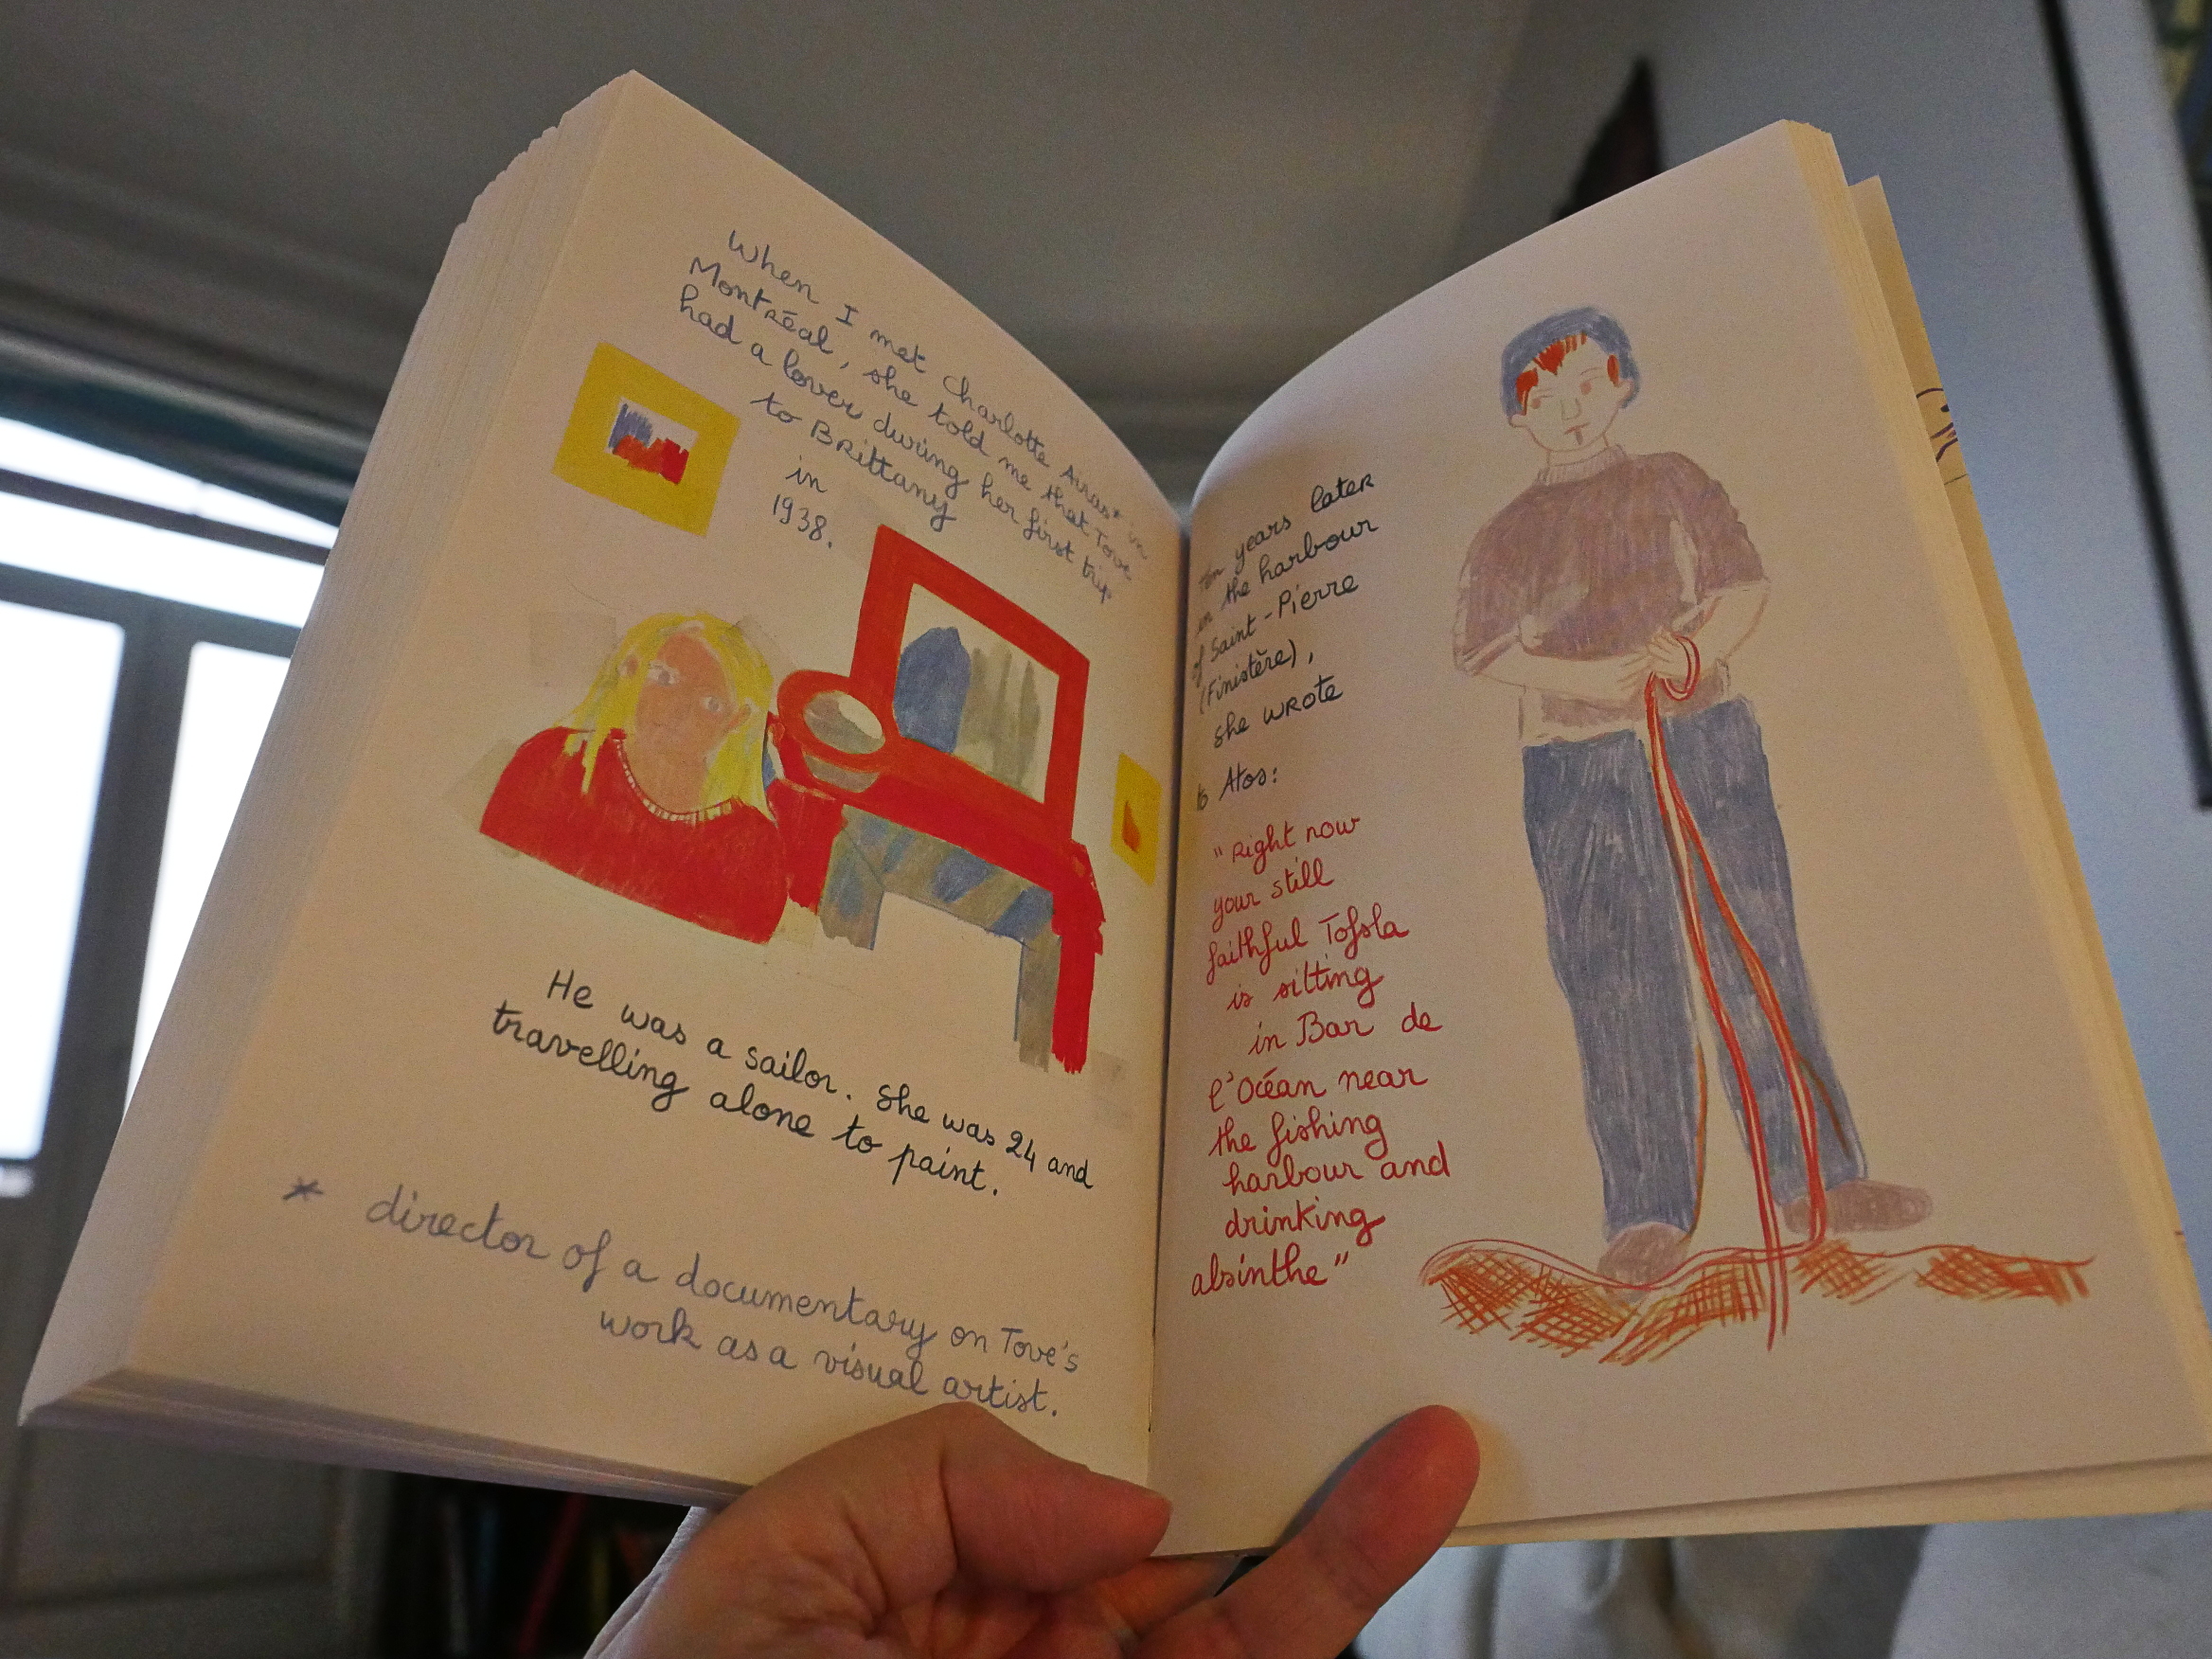 When I met Charlotte Airas* in
Montréal, she told me that Tove
had a lover during her first trip
to Brittany
in
1938.
He was a sailor. She was 24 and
travelling alone to paint.
* director of a documentary on Tove's
work as a visual artist.
Ten years later
in the harbour
of Saint-Pierre
(Finistère),
she wrote
to Atos:
"Right now
your still
faithful Tofsla
is sitting
in Bar de
l'Océan near
the fishing
harbour and
drinking
absinthe"